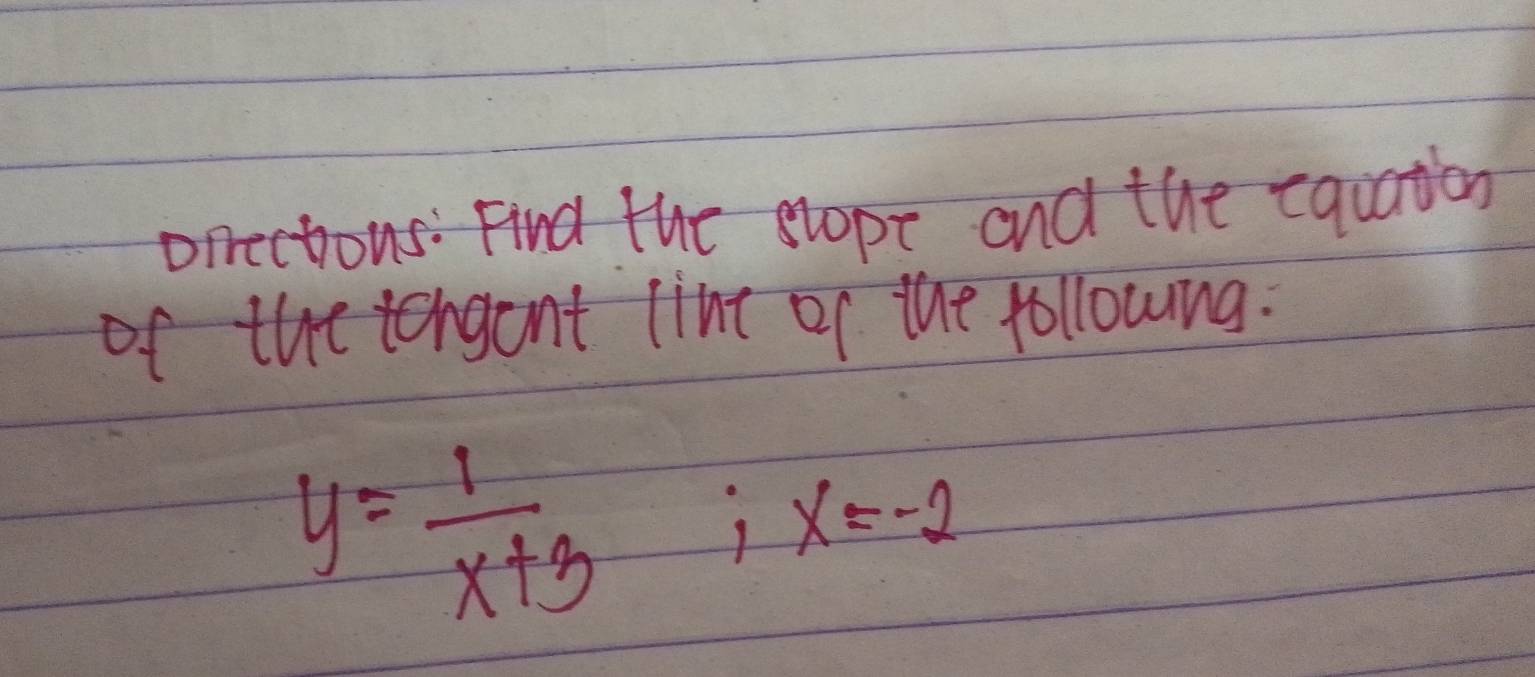 Directions: Find the slope and the equation
of the tangent line of the following:
y = 1/(x+3) ; x = -2